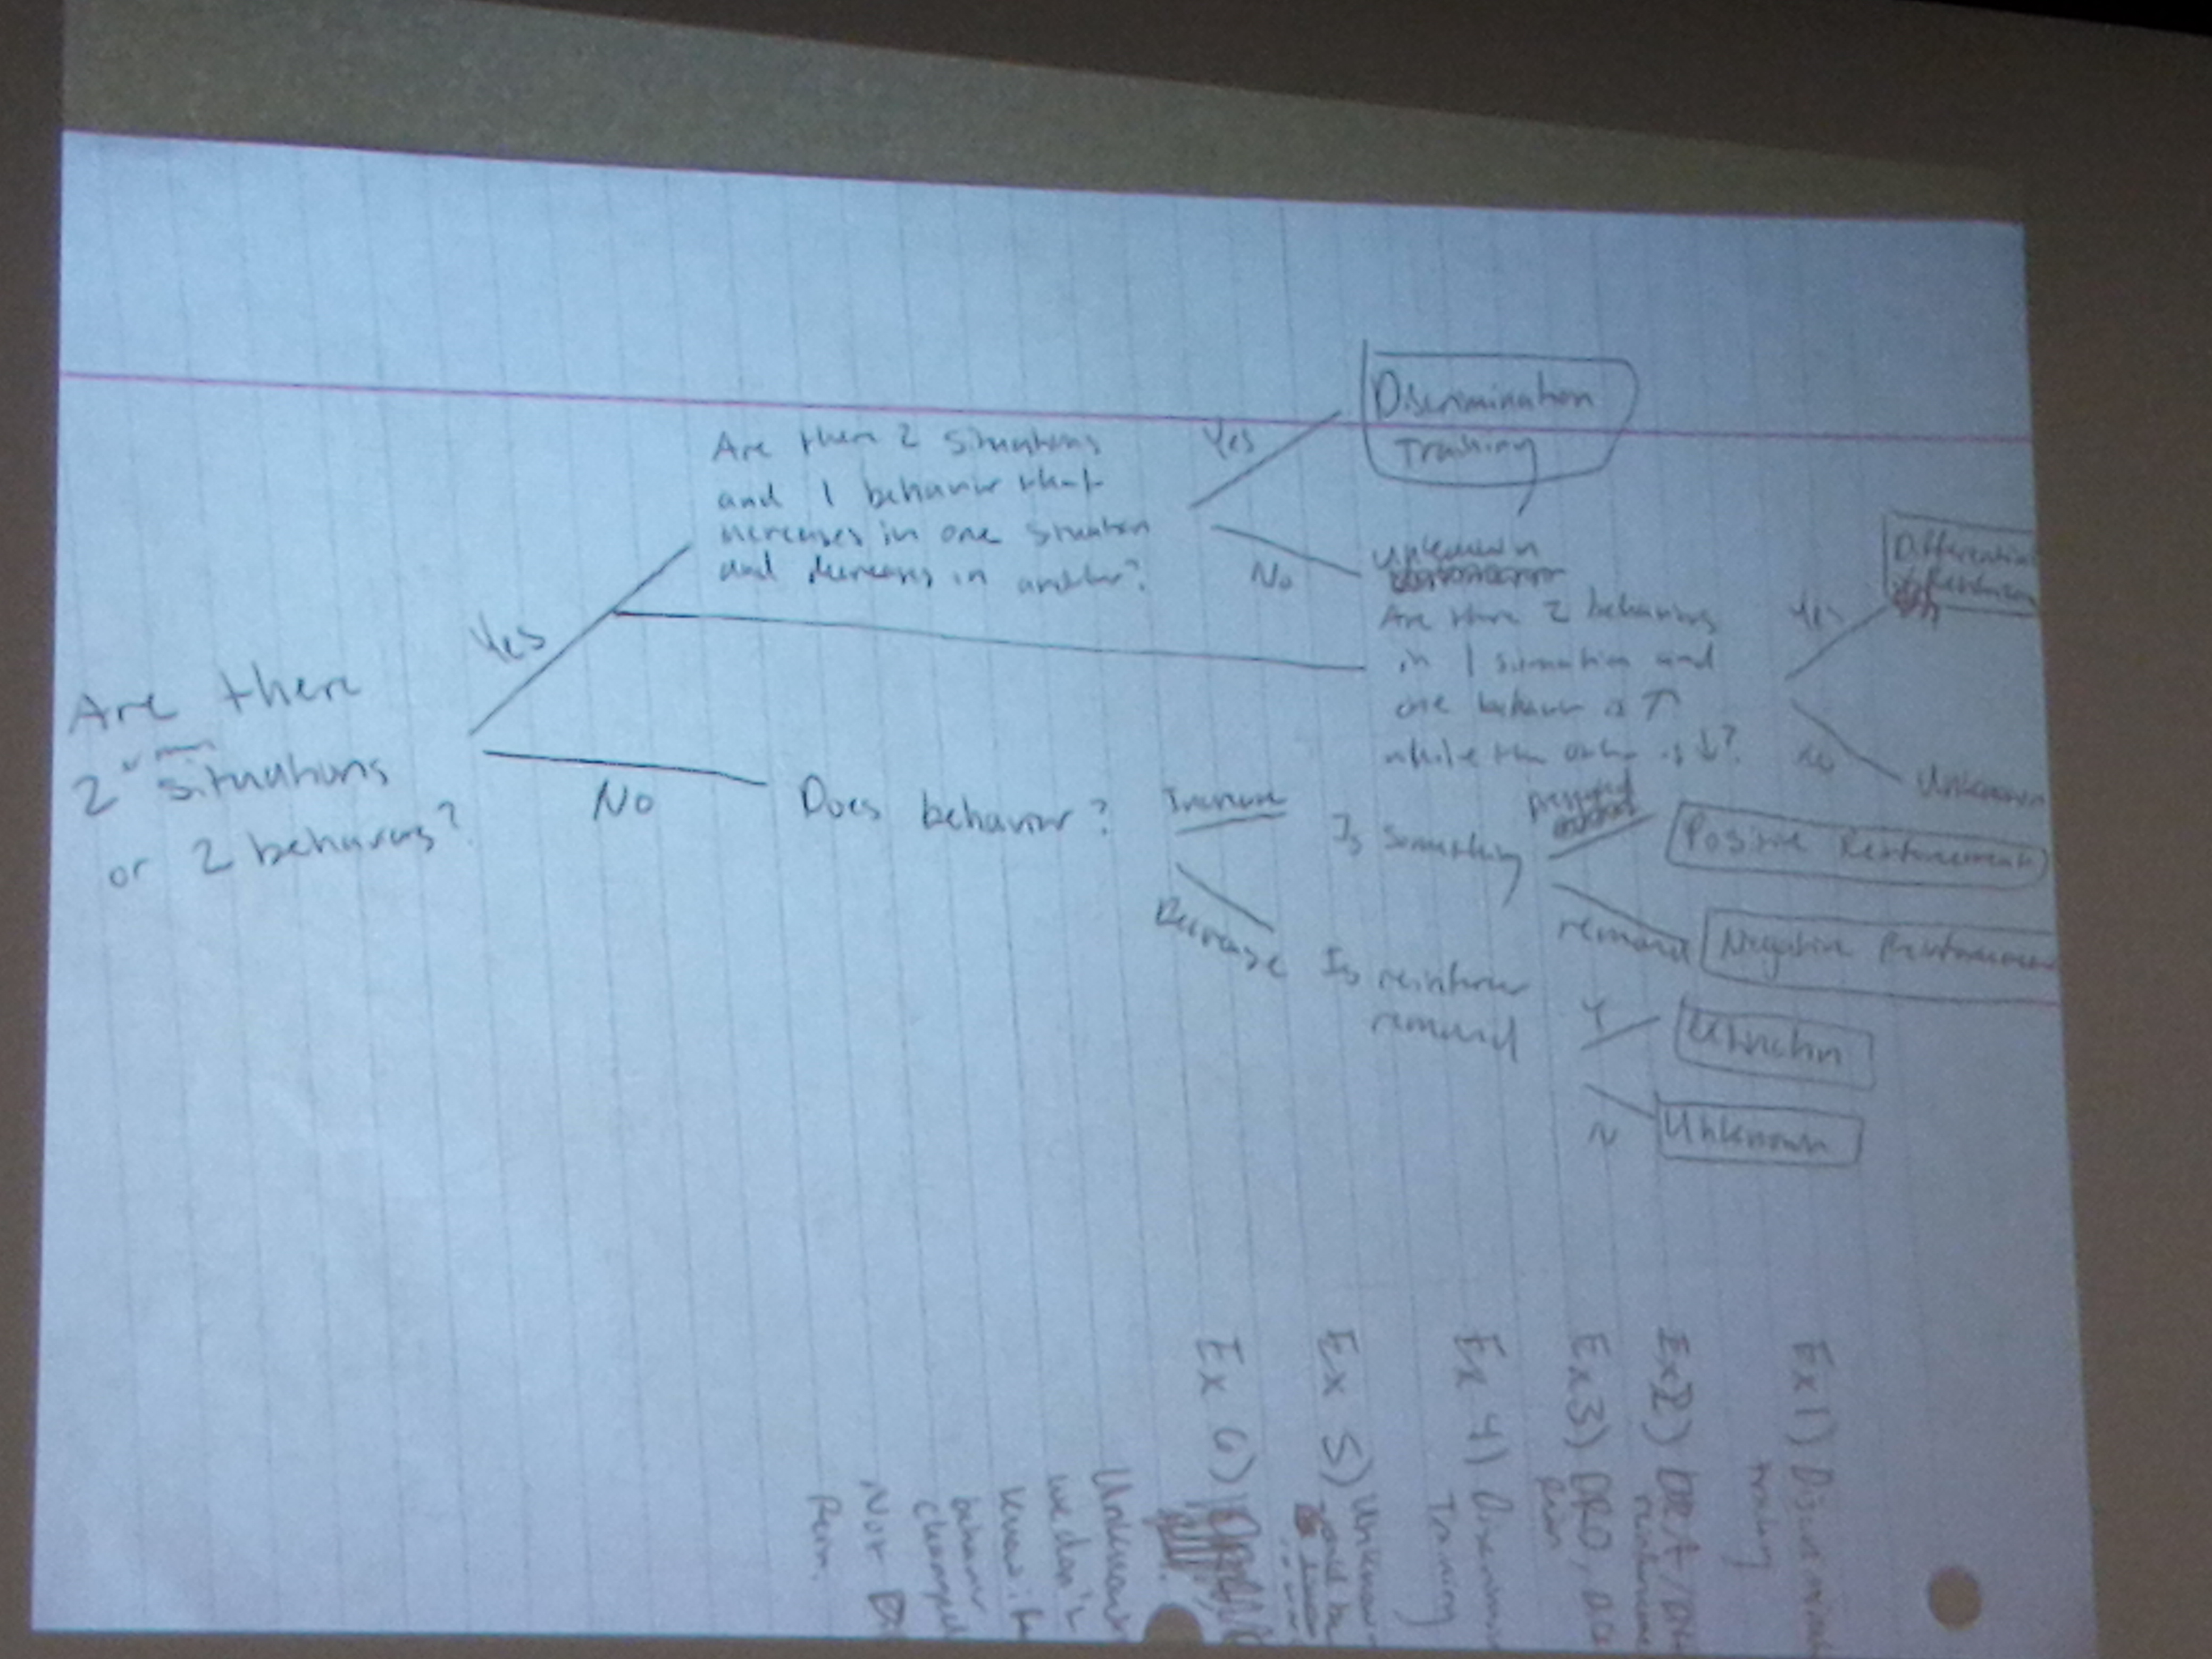 Are there
2 situations
or 2 behaviors?
Yes
No
Are there 2 situations
and 1 behavior that
increases in one situation
and decreases in another?
Yes
No
Discrimination
Training
Unknown
Are there 2 behaviors
in 1 situation and
one behavior is ↑
while the other is ↓?
Yes
No
Differential
Unknown
Does behavior?
Increase
Decrease
Is something
presented
removed
Positive Reinforcement
Negative Reinforcement
Is reinforcer
removed
Y
N
Extinction
Unknown
Ex 1) Discriminat
training
Ex 2) DRA /
reinforcement
Ex 3) DRO,
Ex 4) Discrimin
Training
Ex 5) Unknown -
could be
Ex 6)
Unknown
we don't
know if
behavior
changed
Not
Rein.